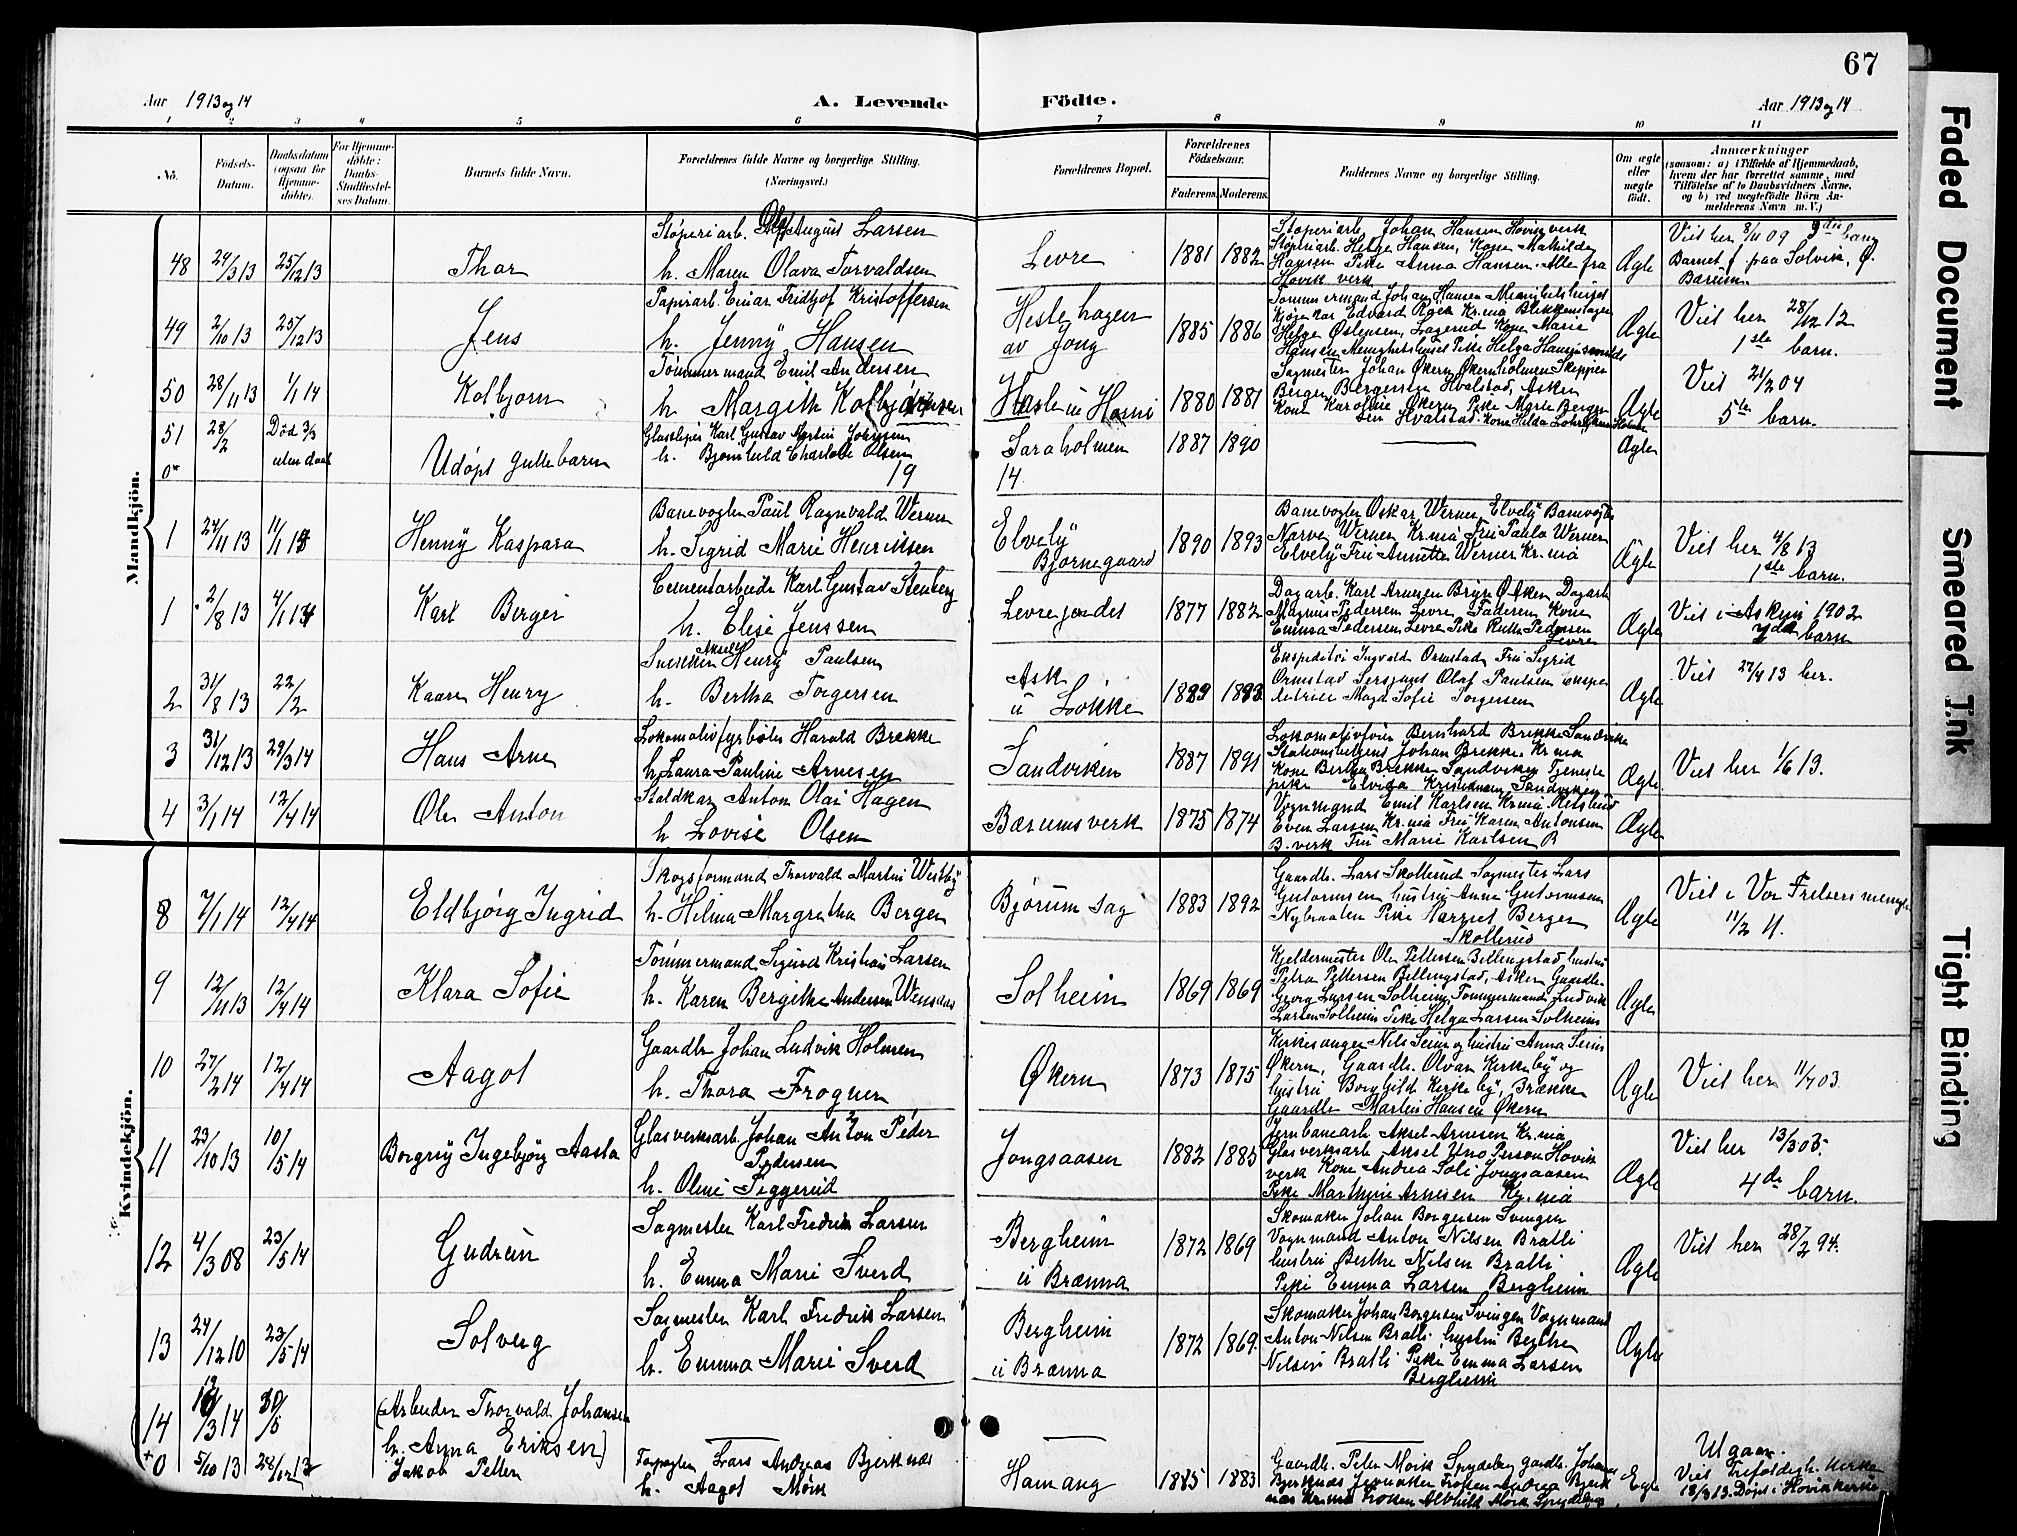 67
Aar 1913 og 14
A. Levende Födte.
Aar 1913 og 14
1 2 3 4 5 6 7 8 9 10 11
No.
Födsels-Datum.
Daabsdatum (ogsaa for Hjemmedöbte).
For Hjemmedöbte: Daabs-Stadfæstelses Datum.
Barnets fulde Navn.
Forældrenes fulde Navne og borgerlige Stilling. (Næringsvei.)
Forældrenes Bopæl.
Forældrenes Födselsaar.
Faderens. Moderens.
Faddernes Navne og borgerlige Stilling.
Om ægte eller uægte födt.
Anmærkninger
(saasom: a) i Tilfælde af Hjemmedaab, hvem der har forrettet samme, med Tilföielse af to Daabsvidners Navne, og b) ved uægtefödte Börn Anmelderens Navn m. V.)
Mandkjön.
48 24/3 13 25/12 13 Thor
Støperiarb. Olaf August Larsen
h. Maren Olava Torvaldsen
Levre 1881 1882
Støperiarb. Johan Hansen Høvikverk
Støperiarb. Helge Hansen, Kone Mathilde
Hansen Pike Anna Hansen. Alle fra
Høvik verk
Ægte
Viet her 8/11 09 3die barn
Barnet f. paa Solvik, Ø.
Bærum.
49 2/10 13 25/12 13 Jens
Papirarb. Einar Fridtjof Kristoffersen
h. Jenny Hansen
Hestehagen
av Jong
1885 1886
Tømmermand Johan Hansen Menighetshuset
Edvard Kr.nia
Helge Østensen, Kone Marie
Hansen Menighetshuset Pike Helga
Ægte
Viet her 28/12 12
1ste barn.
50 28/11 13 1/1 14 Kolbjørn
Tømmermand Emil Andersen
h. Margith Kolbjørnsen
1880 1881
Sagmester Johan Økern Økernholmen Skipper
Berger Bergersen Hvalstad, Asker
Kone Karoline Økern Pike Marte Berger
sen Hvalstad. Kone Hilda
Ægte
Viet 21/2 04
5te barn.
51 28/2 Død 3/3
uten daab
0* Udøpt guttebarn
Karl Gustav Martin
h. Charlotte Olsen
19
Saraholmen
14.
1887 1890
Ægte
1 24/11 13 11/1 14 Henny Kaspara
Banevogter Paul Ragnvald Werner
h. Sigrid Marie Henriksen
Elvely
Bjørnegaard
1890 1893
Banevogter Oskar Werner, Elvely Banevogter
Narve Werner Kr.nia Fru Paula Werner
Elvely Fru Annette Werner Kr.nia
Ægte
Viet her 4/8 13
1ste barn.
1 2/8 13 4/1 14 Karl Berger
Cementarbeider Karl Gustav Stenberg
h. Elise Jenssen
Levrejordet 1877 1882
Dagarb. Karl Arnesen Ø. Asker, Dagarb.
Magnus Pedersen Levre, Faderen, Kone
Emma Pedersen Levre Pike Ruth Pedersen
Levre
Ægte
Viet i Asker 1902
7de barn
2 31/8 13 22/2 Kaare Henry
Snekker Aksel Henry Paulsen
h. Bertha Torgersen
Ask
u Løkke
1889 1893
Ekspeditør Ingvald Ormstad Fru Sigrid
Ormstad Sersjant Olaf Paulsen Ekspe
ditrice Magd Sofie Torgersen
Ægte
Viet 27/4 13 her.
3 31/12 13 29/3 14 Hans Arne
Lokomotivfyrbøter Harald Brekke
h. Laura Pauline Arnesen
Sandviken 1887 1891
Lokomotivfører Bernhard Brekke Sandviken
Stationsbetjent Johan Brekke Kr.nia
Kone Bertha Brekke Sandviken Tjeneste
pike Elvida Kristiansen, Sandviken
Ægte
Viet her 1/6 13.
4 3/1 14 12/4 14 Ole Anton
Staldkar Anton Olai Hagen
h. Lovise Olsen
Bærumsverk 1875 1874
Vognmand Emil Karlsen Kr.nia
Even Larsen Kr.nia Fru Karen Antonsen
B. verk Fru Marie Karlsen B
Ægte
Kvindekjön.
8 7/1 14 12/4 14 Eldbjørg Ingrid
Skogsformand Thorvald Martin Westby
h. Hilma Margretha Berger
Bjørum sag 1883 1892
Gaardbr. Lars Skollerud Sagmester Lars
Gutormsen hustru Anna Gutormsen
Nybraaten Pike Harriet Berger
Skollerud
Ægte
Viet i Vor Frelsers menigh.
11/2 11.
9 12/11 13 12/4 14 Klara Sofie
Tømmermand Sigurd Kristian Larsen
h. Karen Bergitte Andersen
Solheim 1869 1869
Kjeldermester Ole Pettersen Billingstad hustru
Petra Pettersen Billingstad, Asker Gaardbr.
Georg Larsen Solheim, Tømmermand Ludvik
Larsen Solheim Pike Helga Larsen Solheim
Ægte
10 27/2 14 12/4 14 Aagot
Gaardbr Johan Ludvik Holmen
h. Thora Frogner
Økern 1873 1875
Kirkesanger Nils Seim og hustru Anna Seim
Økern, Gaardbr. Olvar Kirkeby og
hustru Borghild Kirkeby, Brække
Gaardbr Martin Hansen Økern
Ægte
Viet her 11/7 03.
11 23/10 13 10/5 14 Borgny Ingebjørg Aasta
Glasverksarb. Johan Anton Peder
Pedersen
h. Oline Tiggerud
Jongsaasen 1882 1885
Jernbanearb Aksel Arnesen Kr.nia
Glasverksarb Aksel Uno Person Høvik
verk Kone Andrea Soli Jongsaasen
Pike Marthine Arnesen Kr.nia
Ægte
Viet her 13/3 05.
4de barn.
12 4/3 08 23/5 14 Gudrun
Sagmester Karl Fredrik Larsen
h. Emma Marie Sverd
Bergheim
u Brænna
1872 1869
Skomaker Johan Borgersen Svingen
Vognmand Anton Nilsen Bratli
hustru Berthe Nilsen Bratli
Pike Emma Larsen Bergheim
Ægte
Viet her 28/2 94.
13 24/12 10 23/5 14 Solveig
Sagmester Karl Fredrik Larsen
h. Emma Marie Sverd
Bergheim
u Brænna
1872 1869.
Skomaker Johan Borgersen Svingen Vognmand
Anton Nilsen Bratli hustru Berthe
Nilsen Bratli Pike Emma Larsen
Bergheim
Ægte
14 /3 14 31/5
(Arbeider Thorvald Johansen
h. Anna Eriksen)
Utgaar.
+0 5/10 13 28/12 13 Jakob Petter
Lars Andreas Bjerknæs
h. Aagot Mørk
Hamang 1885 1883
Gaardb. Peter Mørk Spydeberg gaardb. Johannes
Bjerknæs Jevnaker Frøken Andrea Bjerk
næs Kr.nia Frøken Alvhild Mørk Spydeberg
Egte
Viet Trefoldigh. kirke
13/3 13. Døpt i Høvik kirke
Faded Document
Smeared Ink
Tight Binding